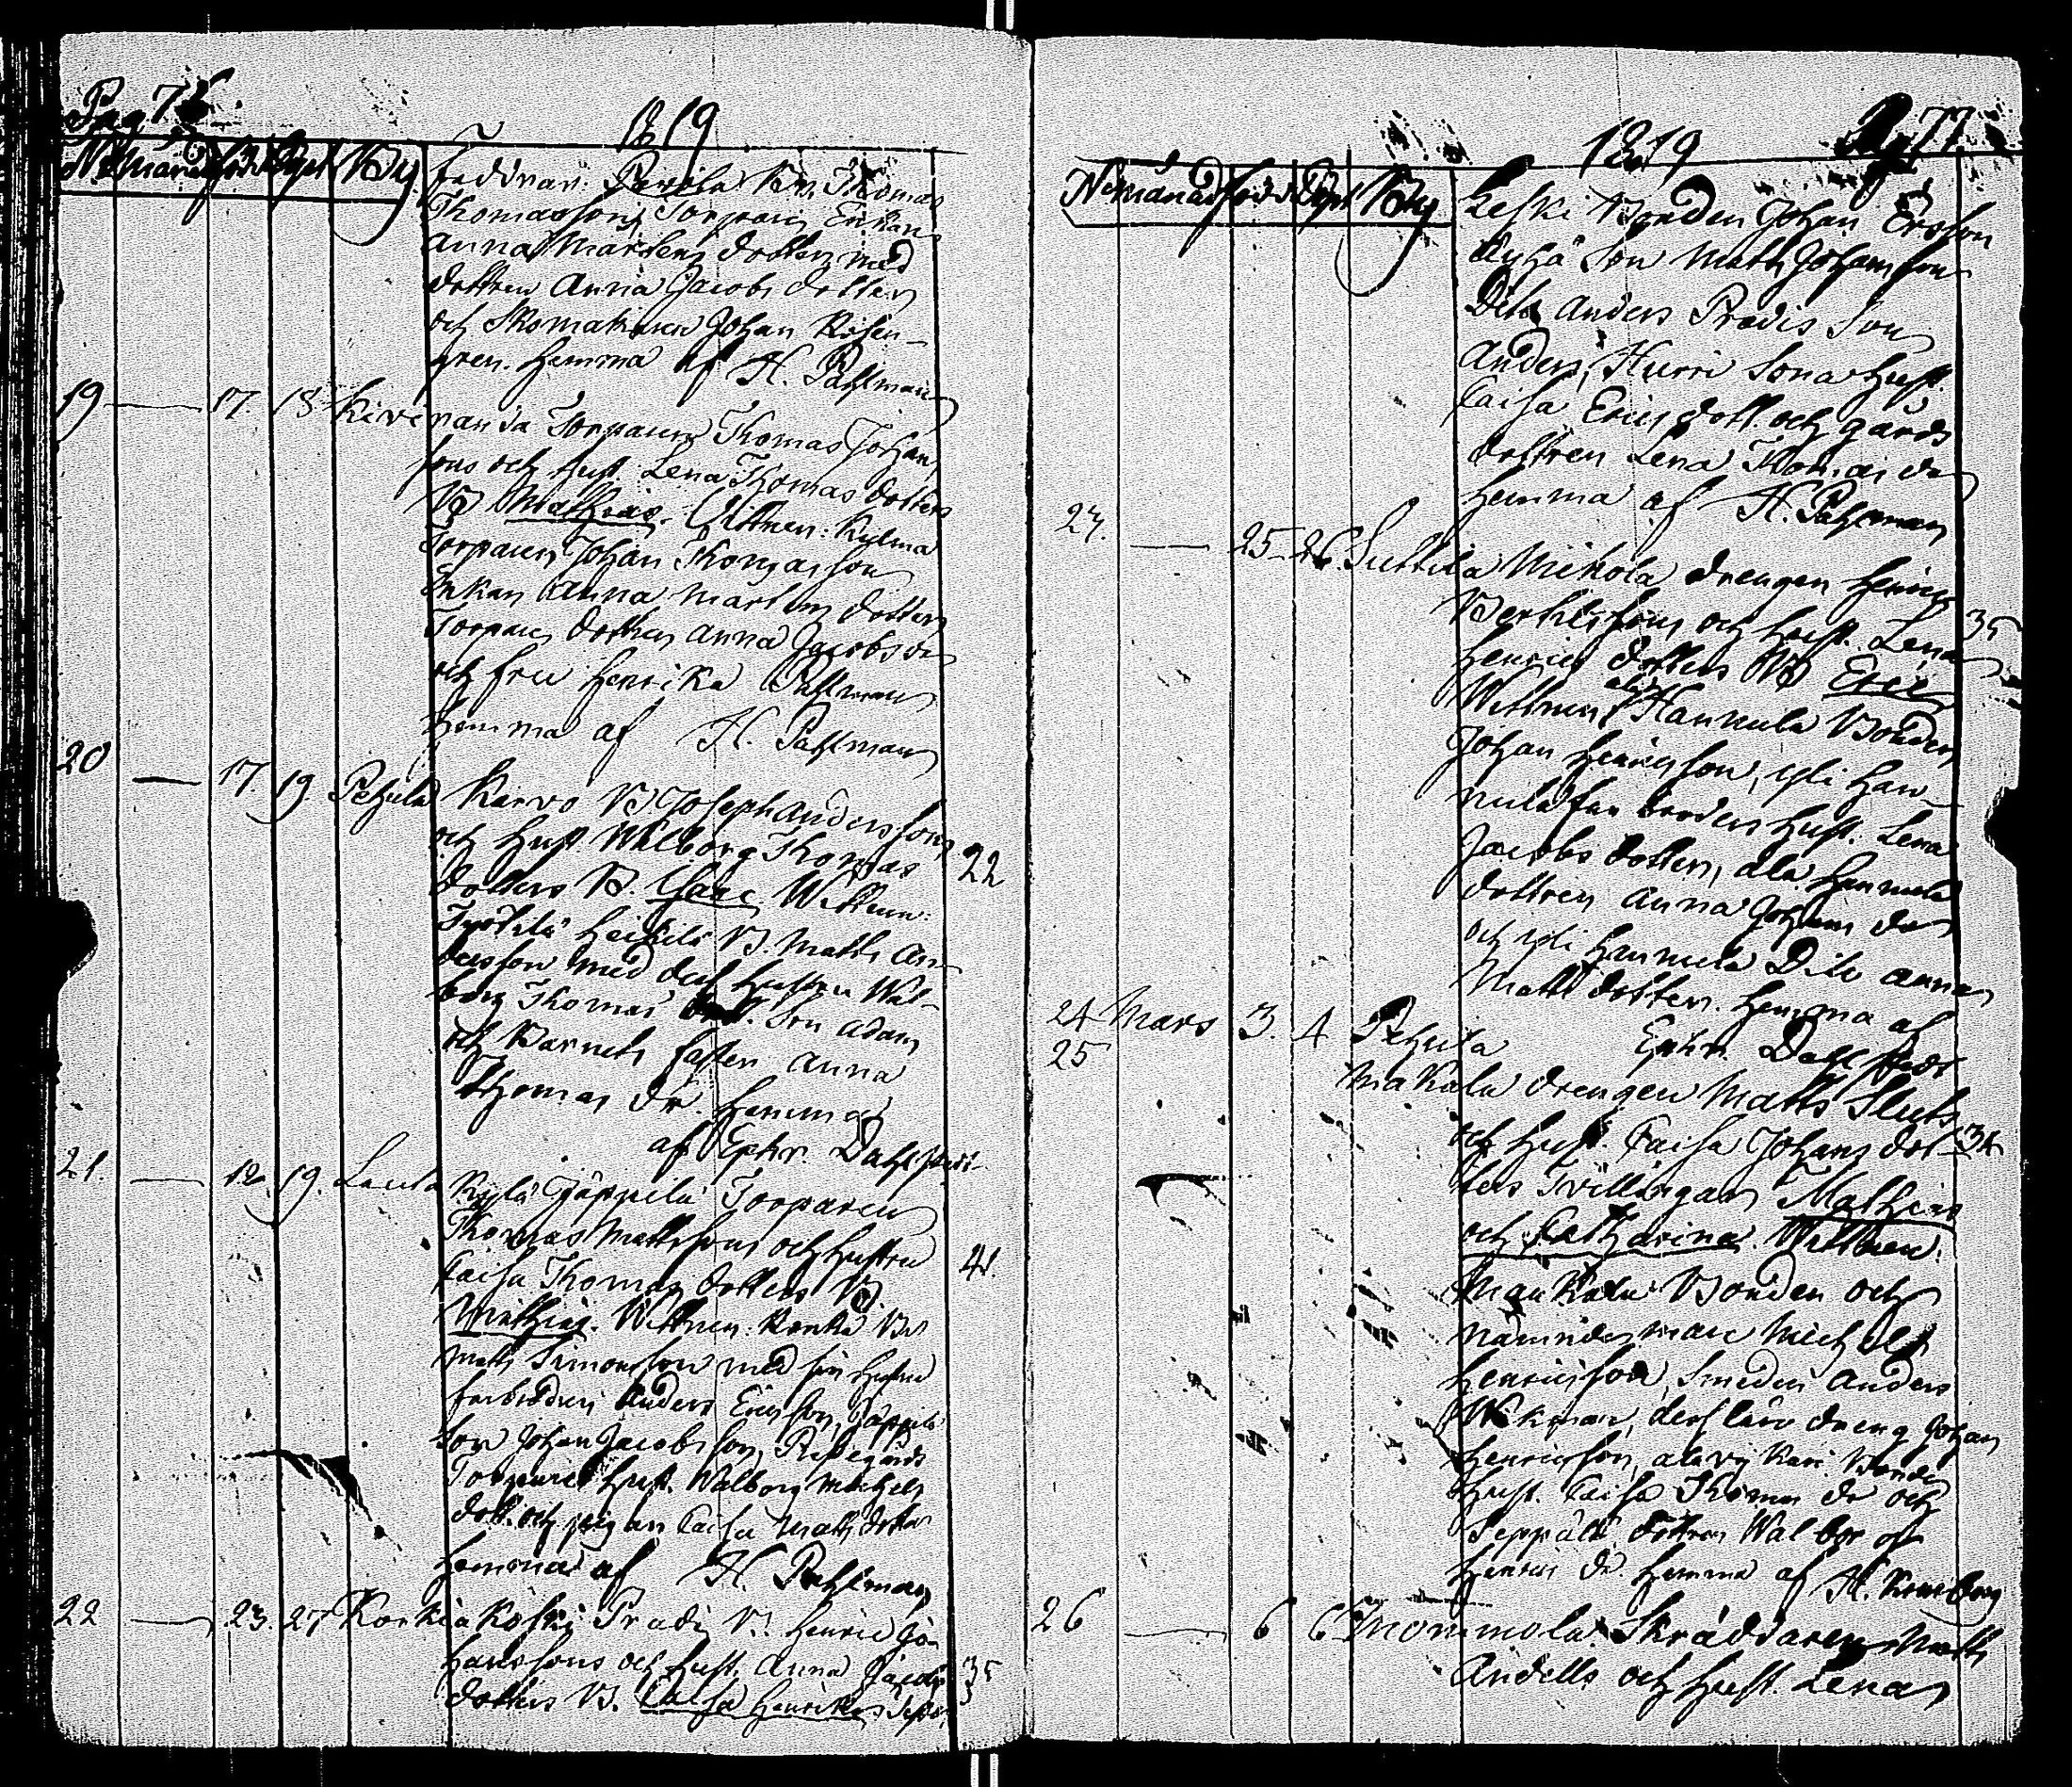 Pag 76
1819
N. Månad född Döpt By
faddrar: Pavila Bn. Thomas
Thomasson, Torpare Enkan
Anna Mårtens dotter med
dottren Anna Jacobs dotter
och Skomakaren Johan Rosen-
gren. hemma af H. Pahlman
19 — 17. 18 Kiviranda Torparen Thomas Johan
sons och hust. Lena Thomas dotters
B Mathias. Wittnen: Kylmä
Torparen Johan Thomasson
Enkan Anna Mårtens dotter
Torpare dottren Anna Jacobs dr
och fru Henrika Pahlman
hemma af H. Pahlman
20 — 17. 19. Pehula Karvo B Joseph Anderssons
och hust. Walborg Thomas 22
dotters B. Isaac. Wittnen:
Heikilä B. Matts An-
dersson med dess hustru Wal-
borg Thomas dott. Son Adam
och Barnets faster Anna
Thomas dr. hemma
af Ephr. Dahlstedt
21. — 12. 19. Lauta Kylä Jäppilä Torparen
Thomas Mattssons och hustru
Caisa Thomas dotters B 41.
Mathias. Wittnen: B
Matts Simonsson med sin hustru
farbrodren Anders Ericsson, Jäppilä
Son Johan Jacobsson,
Torpare hust. Walborg Michels
dott. och pigan Caisa Matts dotter
hemma af H. Pahlman
22 — 23. 27 Korkiakoski Pradi B. Henric Jo-
hanssons och hust. Anna Jacobs 35
dotters B. Caisa Henrika
Pag 77
1819
N Månad född Döpt By
Leski Bonden Johan Ersson
Äyhä Son Matts Johansson
Dito Anders Pradis Son
Anders, Hurri Sona hust.
Caisa Erics dott. och gårds
dottren Lena Thomas dr
hemma af H. Pahlman
23. — 25 26. Suttila Mikola drengen Henric
Bertilssons och hust. Lena 35
Henrics dotters B Eric
Wittnen: ala Hannula Bonden
Johan Henricsson, yli Han-
nula farbroders hust. Lena
Jacobs dotter, ala Hannula
dottren Anna Johans dr
och yli Hannula Dito Anna
Matts dotter. hemma af
Ephr. Dahlstedt
24 Mars 3. 4 Pehula
25
Maukala drengen Matts Sluts
och hust. Caisa Johans dot- 34
ters Tvillingar Mathias
och Catharina. Wittnen:
Maukala Bonden och
nämndeman Michel
Henricsson, Smeden Anders
Wikman, dess läro dreng Johan
Henricsson, Bonde
hust. Caisa Thomas dr och
Seppälä dottren Walborg
Henrics dr. hemma af H.
26 — 6 6 Mommola Skräddaren Matts
Andells och hust. Lena